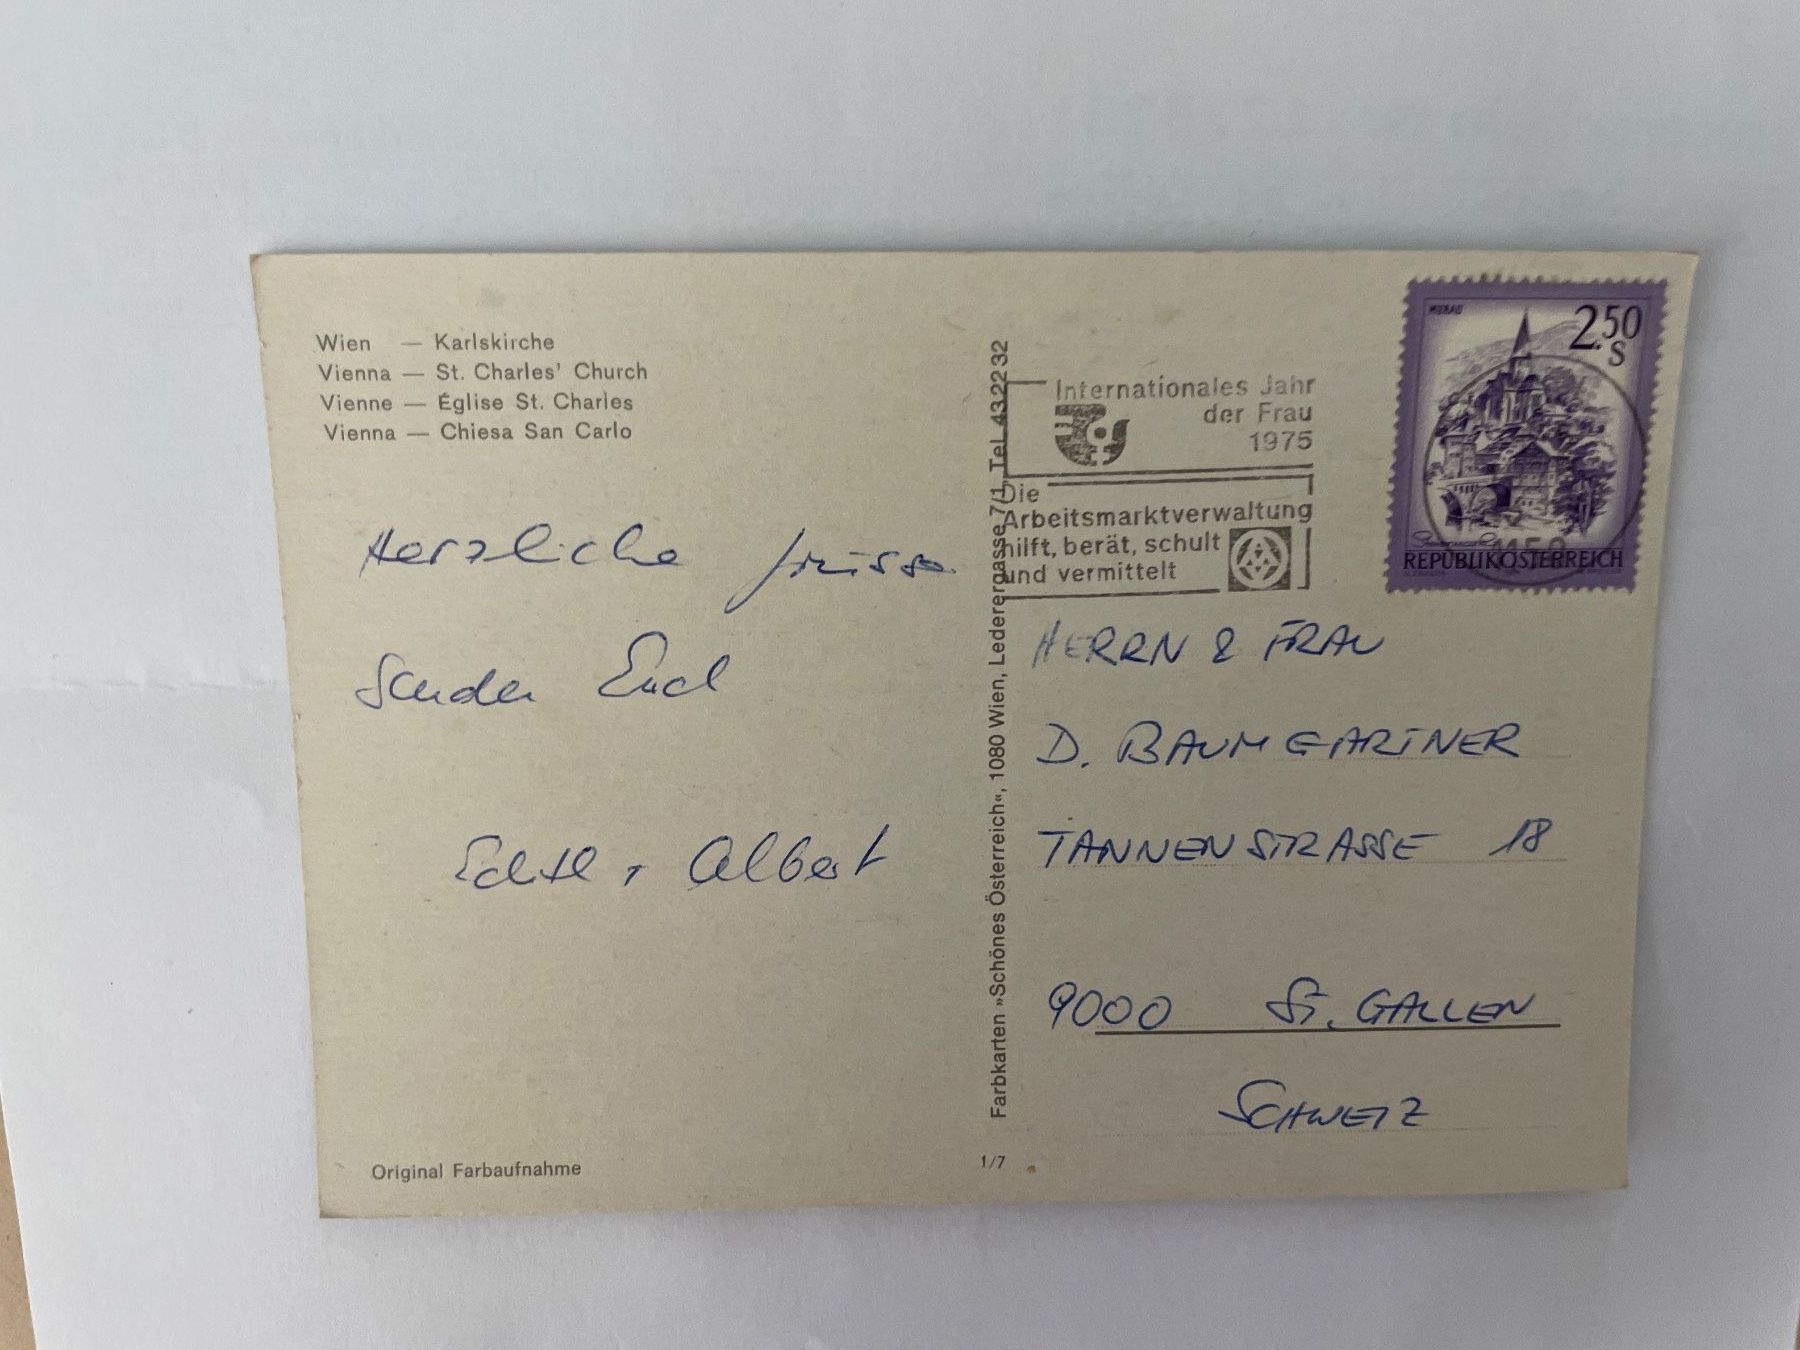 Wien — Karlskirche
Vienna — St. Charles' Church
Vienne — Église St. Charles
Vienna — Chiesa San Carlo
Herzliche Grüsse
senden Euch
Edith + Albert
Original Farbaufnahme
Farbkarten »Schönes Österreich«, 1080 Wien, Lederergasse 7/1, Tel. 43 22 32
1/7
Internationales Jahr
der Frau
1975
Die
Arbeitsmarktverwaltung
hilft, berät, schult
und vermittelt
MURAU
2.50
S
REPUBLIK ÖSTERREICH
HERRN & FRAU
D. BAUMGARTNER
TANNENSTRASSE 18
9000 St. GALLEN
SCHWEIZ